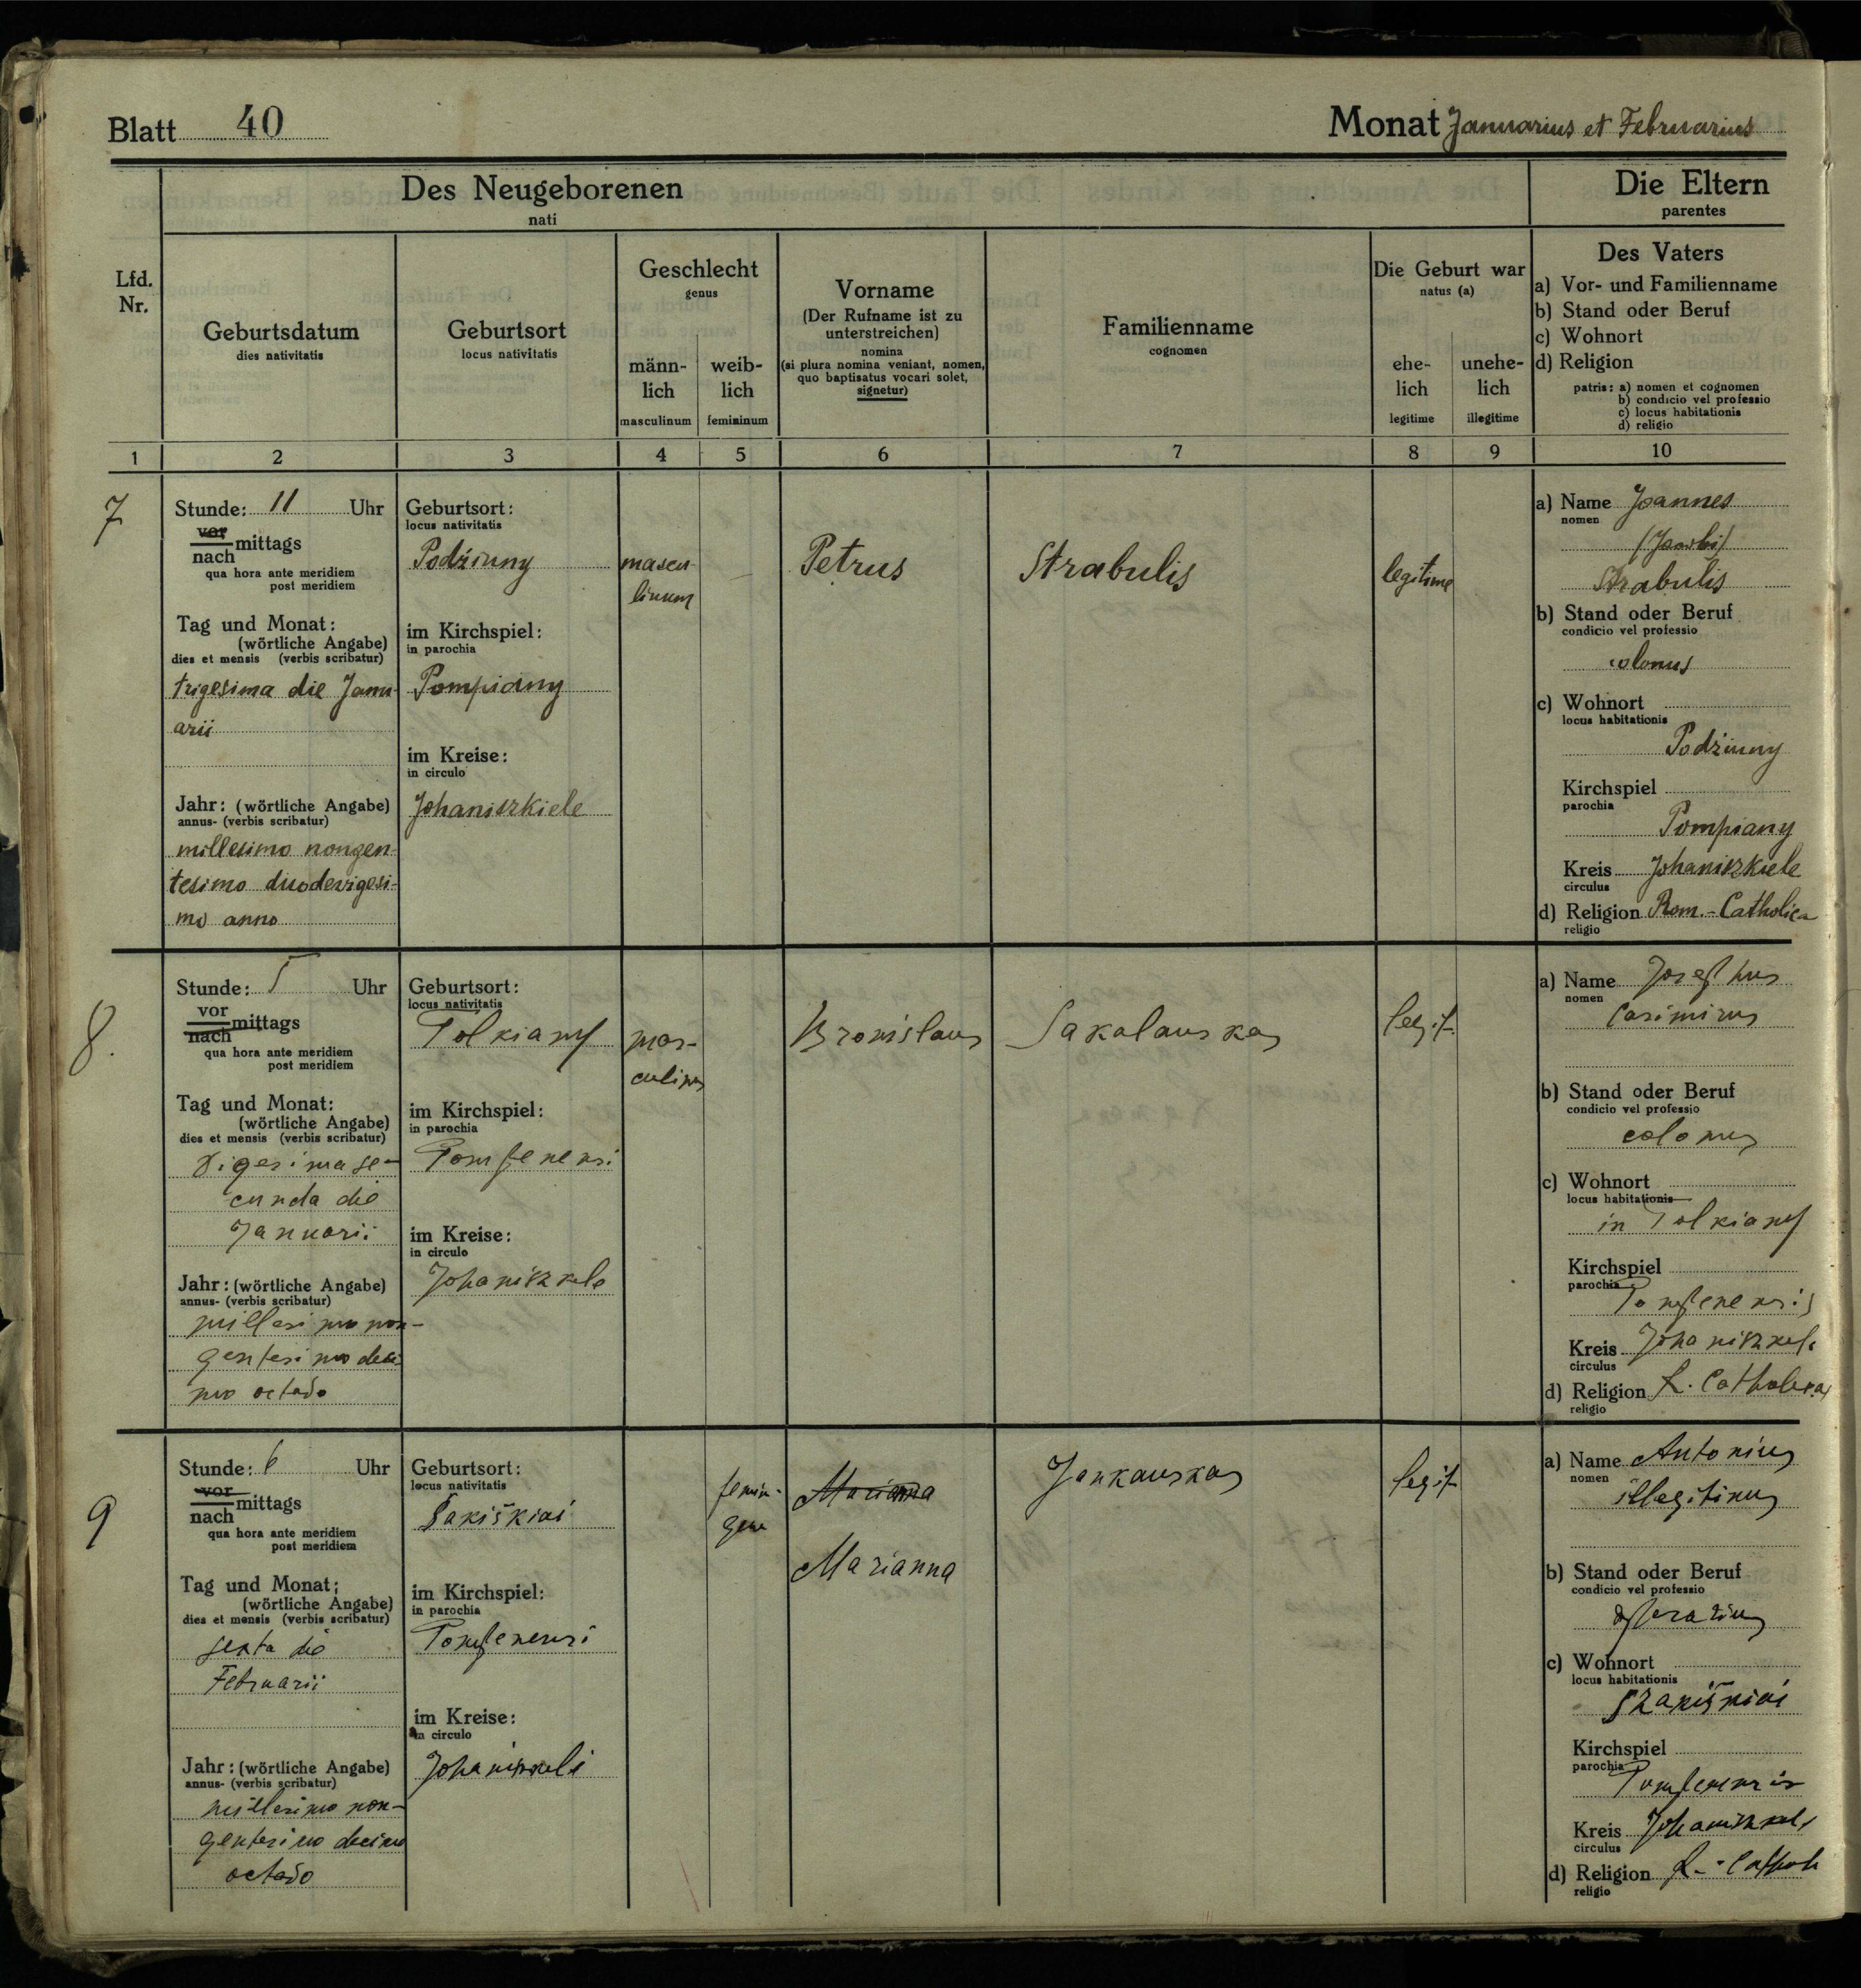 Blatt 40
Monat Januarius et Februarius
Des Neugeborenen
nati
Die Eltern
parentes
Lfd.
Nr.
Geburtsdatum
dies nativitatis
Geburtsort
locus nativitatis
Geschlecht
genus
männ-
lich
masculinum
weib-
lich
femininum
Vorname
(Der Rufname ist zu
unterstreichen)
nomina
(si plura nomina veniant, nomen,
quo baptisatus vocari solet,
signetur)
Familienname
cognomen
Die Geburt war
natus (a)
ehe-
lich
legitime
unehe-
lich
illegitime
Des Vaters
a) Vor- und Familienname
b) Stand oder Beruf
c) Wohnort
d) Religion
patris: a) nomen et cognomen
b) condicio vel professio
c) locus habitationis
d) religio
1 2 3 4 5 6 7 8 9 10
7
Stunde: 11 Uhr
vor
nach mittags
qua hora ante meridiem
post meridiem
Tag und Monat:
(wörtliche Angabe)
dies et mensis (verbis scribatur)
trigesima die Janu-
arii
Jahr: (wörtliche Angabe)
annus- (verbis scribatur)
millesimo nongen-
tesimo duodevigesi-
mo anno
Geburtsort:
locus nativitatis
Podžiuny
im Kirchspiel:
in parochia
Pompiany
im Kreise:
in circulo
Johaniszkiele
mascu-
linum
Petrus
Strabulis
legitime
a) Name Joannes
nomen
Strabulis
b) Stand oder Beruf
condicio vel professio
colonus
c) Wohnort
locus habitationis
Podžiuny
Kirchspiel
parochia
Pompiany
Kreis Johaniszkiele
circulus
d) Religion Rom.-Catholica
religio
8.
Stunde: 5 Uhr
vor
nach mittags
qua hora ante meridiem
post meridiem
Tag und Monat:
(wörtliche Angabe)
dies et mensis (verbis scribatur)
Vigesima se-
cunda die
Januarii
Jahr: (wörtliche Angabe)
annus- (verbis scribatur)
millesimo non-
gentesimo deci
mo octavo
Geburtsort:
locus nativitatis
Tolkiany
im Kirchspiel:
in parochia
Pompenensi
im Kreise:
in circulo
Johaniszkele
mas-
culinus
Bronislaus
Sakalauskas
legit.
a) Name Josephus
nomen
Casimirus
b) Stand oder Beruf
condicio vel professio
colonus
c) Wohnort
locus habitationis
in Tolkiany
Kirchspiel
parochia
Pompenensis
Kreis Johaniszkele
circulus
d) Religion R. Catholica
religio
9
Stunde: 6 Uhr
vor
nach mittags
qua hora ante meridiem
post meridiem
Tag und Monat:
(wörtliche Angabe)
dies et mensis (verbis scribatur)
sexta die
Februarii
Jahr: (wörtliche Angabe)
annus- (verbis scribatur)
millesimo non-
gentesimo decimo
octavo
Geburtsort:
locus nativitatis
Šakiškiai
im Kirchspiel:
in parochia
Pompenensi
im Kreise:
in circulo
Johaniszkeli
femin-
Marianna
Marianna
Jankauskas
legit.
a) Name Antonius
nomen
illegitimus
b) Stand oder Beruf
condicio vel professio
operarius
c) Wohnort
locus habitationis
Szakiškiai
Kirchspiel
parochia
Pompenensis
Kreis Johaniszkele
circulus
d) Religion R.-Cathol
religio